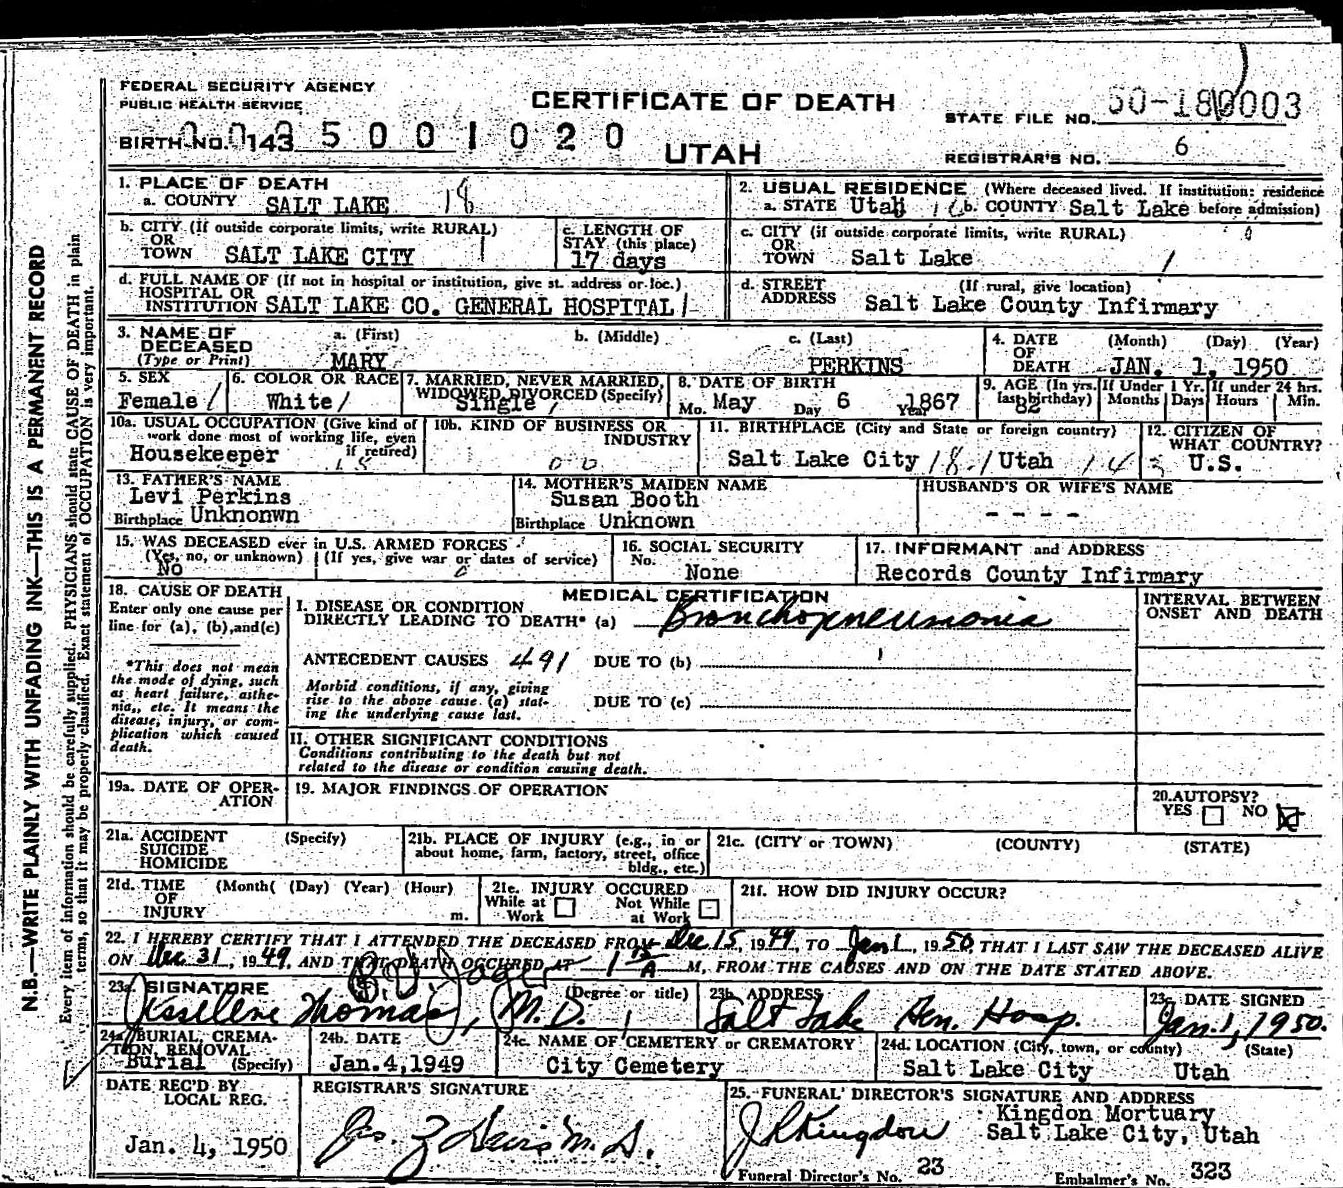 FEDERAL SECURITY AGENCY
PUBLIC HEALTH SERVICE
CERTIFICATE OF DEATH
UTAH
BIRTH NO. 143 5 0 0 1 0 2 0
STATE FILE NO.
REGISTRAR'S NO. 6
N.B.—WRITE PLAINLY WITH UNFADING INK—THIS IS A PERMANENT RECORD
Every item of information should be carefully supplied. PHYSICIANS should state CAUSE OF DEATH in plain
terms, so that it may be properly classified. Exact statement of OCCUPATION is very important.
1. PLACE OF DEATH
a. COUNTY SALT LAKE 18
2. USUAL RESIDENCE (Where deceased lived. If institution: residence
a. STATE Utah b. COUNTY Salt Lake before admission)
b. CITY (If outside corporate limits, write RURAL)
OR
TOWN SALT LAKE CITY
c. LENGTH OF
STAY (this place)
17 days
c. CITY (if outside corporate limits, write RURAL)
OR
TOWN Salt Lake
d. FULL NAME OF (If not in hospital or institution, give st. address or loc.)
HOSPITAL OR
INSTITUTION SALT LAKE CO. GENERAL HOSPITAL
d. STREET (If rural, give location)
ADDRESS Salt Lake County Infirmary
3. NAME OF
DECEASED
(Type or Print)
a. (First) b. (Middle) c. (Last)
MARY PERKINS
4. DATE (Month) (Day) (Year)
OF
DEATH JAN. 1, 1950
5. SEX
Female
6. COLOR OR RACE
White
7. MARRIED, NEVER MARRIED,
WIDOWED DIVORCED (Specify)
Single
8. DATE OF BIRTH
Mo. May Day 6 Year 1867
9. AGE (In yrs. last birthday) 82
If Under 1 Yr. Months Days
If under 24 hrs. Hours Min.
10a. USUAL OCCUPATION (Give kind of
work done most of working life, even
if retired)
Housekeeper
10b. KIND OF BUSINESS OR
INDUSTRY
11. BIRTHPLACE (City and State or foreign country)
Salt Lake City Utah
12. CITIZEN OF
WHAT COUNTRY?
U.S.
13. FATHER'S NAME
Levi Perkins
Birthplace Unknonwn
14. MOTHER'S MAIDEN NAME
Susan Booth
Birthplace Unknown
HUSBAND'S OR WIFE'S NAME
- - - -
15. WAS DECEASED ever in U.S. ARMED FORCES
(Yes, no, or unknown) (If yes, give war or dates of service)
No
16. SOCIAL SECURITY
No.
None
17. INFORMANT and ADDRESS
Records County Infirmary
18. CAUSE OF DEATH
Enter only one cause per
line for (a), (b), and (c)
*This does not mean
the mode of dying, such
as heart failure, asthe-
nia, etc. It means the
disease, injury, or com-
plication which caused
death.
MEDICAL CERTIFICATION
I. DISEASE OR CONDITION
DIRECTLY LEADING TO DEATH* (a) Bronchopneumonia
ANTECEDENT CAUSES 491 DUE TO (b)
Morbid conditions, if any, giving
rise to the above cause (a) stat-
ing the underlying cause last.
DUE TO (c)
II. OTHER SIGNIFICANT CONDITIONS
Conditions contributing to the death but not
related to the disease or condition causing death.
INTERVAL BETWEEN
ONSET AND DEATH
19a. DATE OF OPER-
ATION
19. MAJOR FINDINGS OF OPERATION
20. AUTOPSY?
YES NO
21a. ACCIDENT (Specify)
SUICIDE
HOMICIDE
21b. PLACE OF INJURY (e.g., in or
about home, farm, factory, street, office
bldg., etc.)
21c. (CITY or TOWN) (COUNTY) (STATE)
21d. TIME (Month( (Day) (Year) (Hour)
OF
INJURY m.
21e. INJURY OCCURED
While at Work Not While at Work
21f. HOW DID INJURY OCCUR?
22. I HEREBY CERTIFY THAT I ATTENDED THE DECEASED FROM Dec 15, 1949, TO Jan 1, 1950, THAT I LAST SAW THE DECEASED ALIVE
ON Dec. 31, 1949, AND THAT DEATH OCCURED AT 1 15 A M, FROM THE CAUSES AND ON THE DATE STATED ABOVE.
23a. SIGNATURE (Degree or title)
Thomas, M.D.
23b. ADDRESS
Salt Lake Gen. Hosp.
23c. DATE SIGNED
Jan. 1, 1950.
24a. BURIAL, CREMA-
TION, REMOVAL
Burial (Specify)
24b. DATE
Jan. 4, 1949
24c. NAME OF CEMETERY or CREMATORY
City Cemetery
24d. LOCATION (City, town, or county) (State)
Salt Lake City Utah
DATE REC'D BY
LOCAL REG.
Jan. 4, 1950
REGISTRAR'S SIGNATURE
Jas. Z Davis M.D.
25. FUNERAL DIRECTOR'S SIGNATURE AND ADDRESS
Kingdon Mortuary
J R Kingdon Salt Lake City, Utah
Funeral Director's No. 23 Embalmer's No. 323